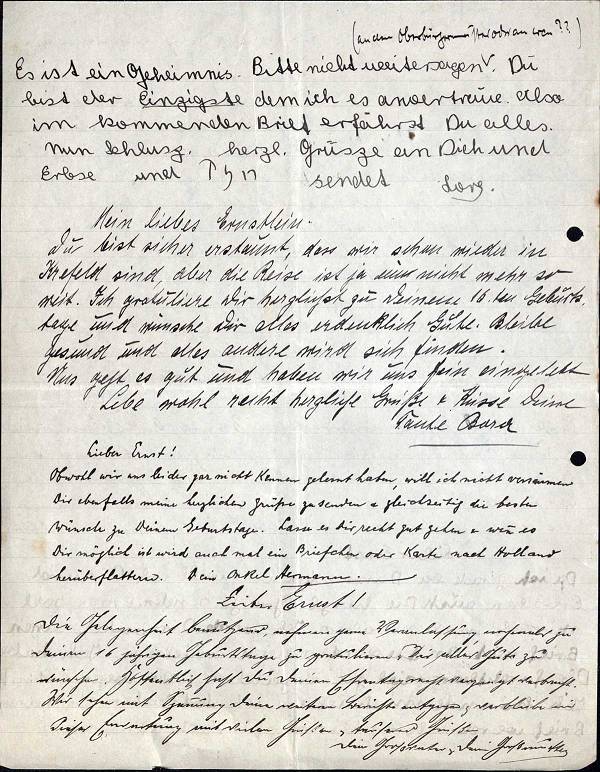 (an den Oberbürgermeister oder an wen??)
Es ist ein Geheimnis. Bitte nicht weitersagen. Du
bist der Einzigste dem ich es anvertraue. Also
im kommenden Brief erfährst Du alles.
Nun Schlusz. herzl. Grüsze an Dich und
Erbse und sendet
Mein liebes Ernstlein.
Du bist sicher erstaunt, dass wir schon wieder in
Krefeld sind, aber die Reise ist ja nun nicht mehr so
weit. Ich gratuliere Dir herzlichst zu Deinem 16 ten Geburts-
tage und wünsche Dir alles erdenklich Gute. Bleibe
gesund und alles andere wird sich finden.
Uns geht es gut und haben wir uns fein eingelebt
Lebe wohl recht herzliche Grüße & Küsse Deine
Tante
Lieber Ernst!
Obwohl wir uns leider gar nicht kennen gelernt haben, will ich nicht versäumen
Dir ebenfalls meine herzlichen Grüße zu senden & gleichzeitig die besten
Wünsche zu Deinem Geburtstage. Lasse es dir recht gut gehen & wenn es
Dir möglich ist wird auch mal ein Briefchen oder Karte nach Holland
herüberflattern. Dein Onkel Hermann.
Lieber Ernst!
Die Gelegenheit benutzend, nehmen gern Veranlassung, zu
Deinem 16 jährigen Geburtstage zu gratulieren & Dir alles Gute zu
wünschen. Hoffentlich hast Du Deinen Ehrentag recht vergnügt verbracht.
Wir sehen mit Spannung Deine weiteren Berichte entgegen,
dieser Erwartung mit vielen Grüßen & tausend Küssen
Dein Großvater & Deine Großmutter